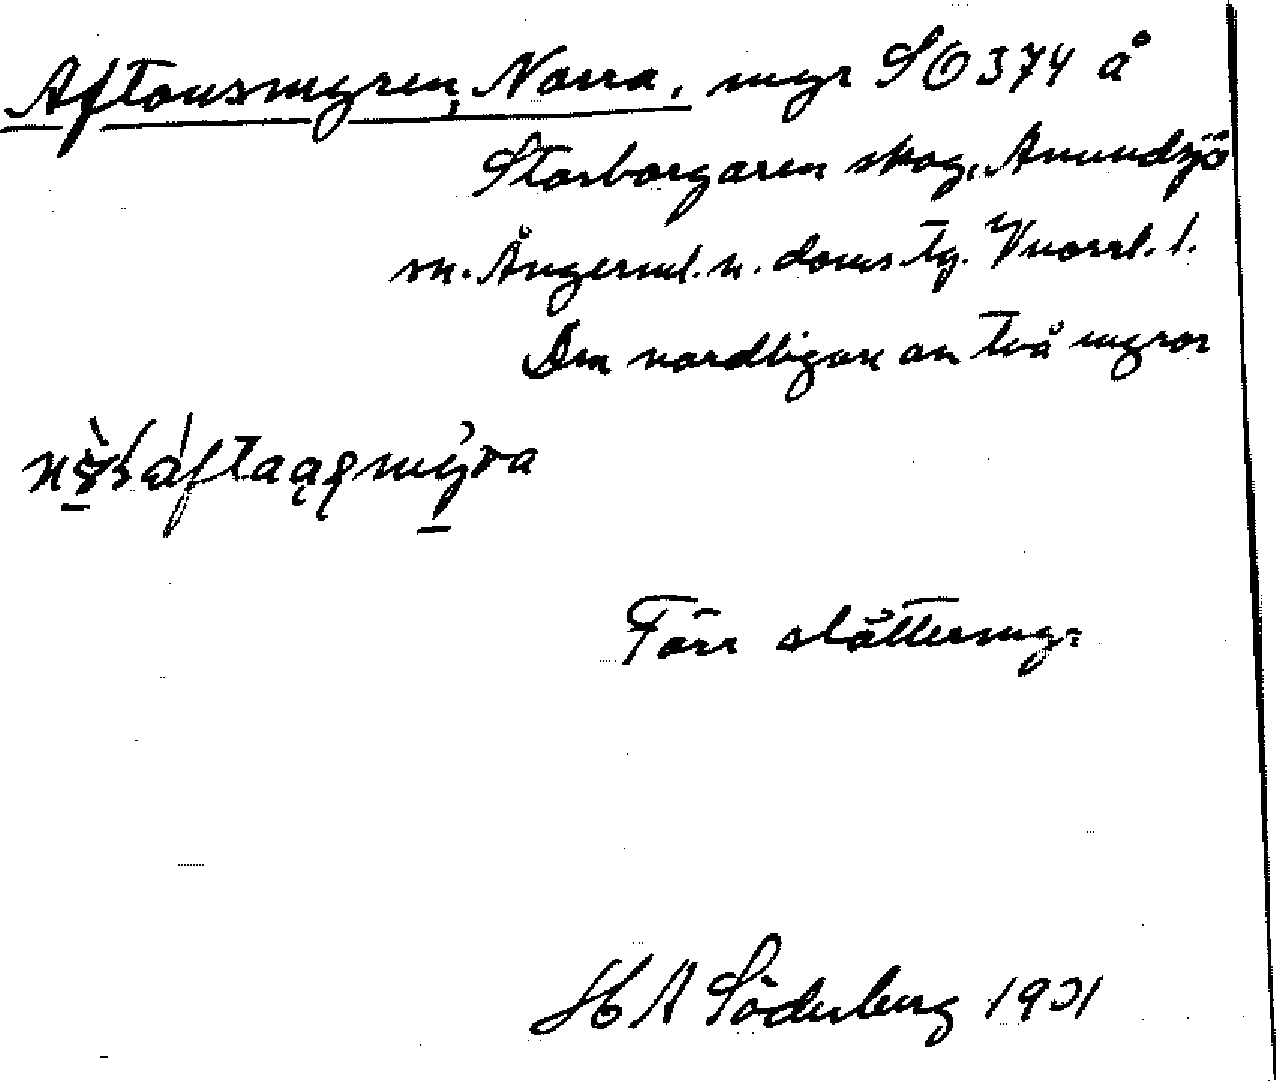 Aftonsmyren, Norra, myr SO 374 å
Storborgaren skog, Anundsjö
sn. Ångerml. n. doms. tg. Vnorrl. l.
Den nordligare av två myror
Förr slåttermyr
H A Söderberg 1931